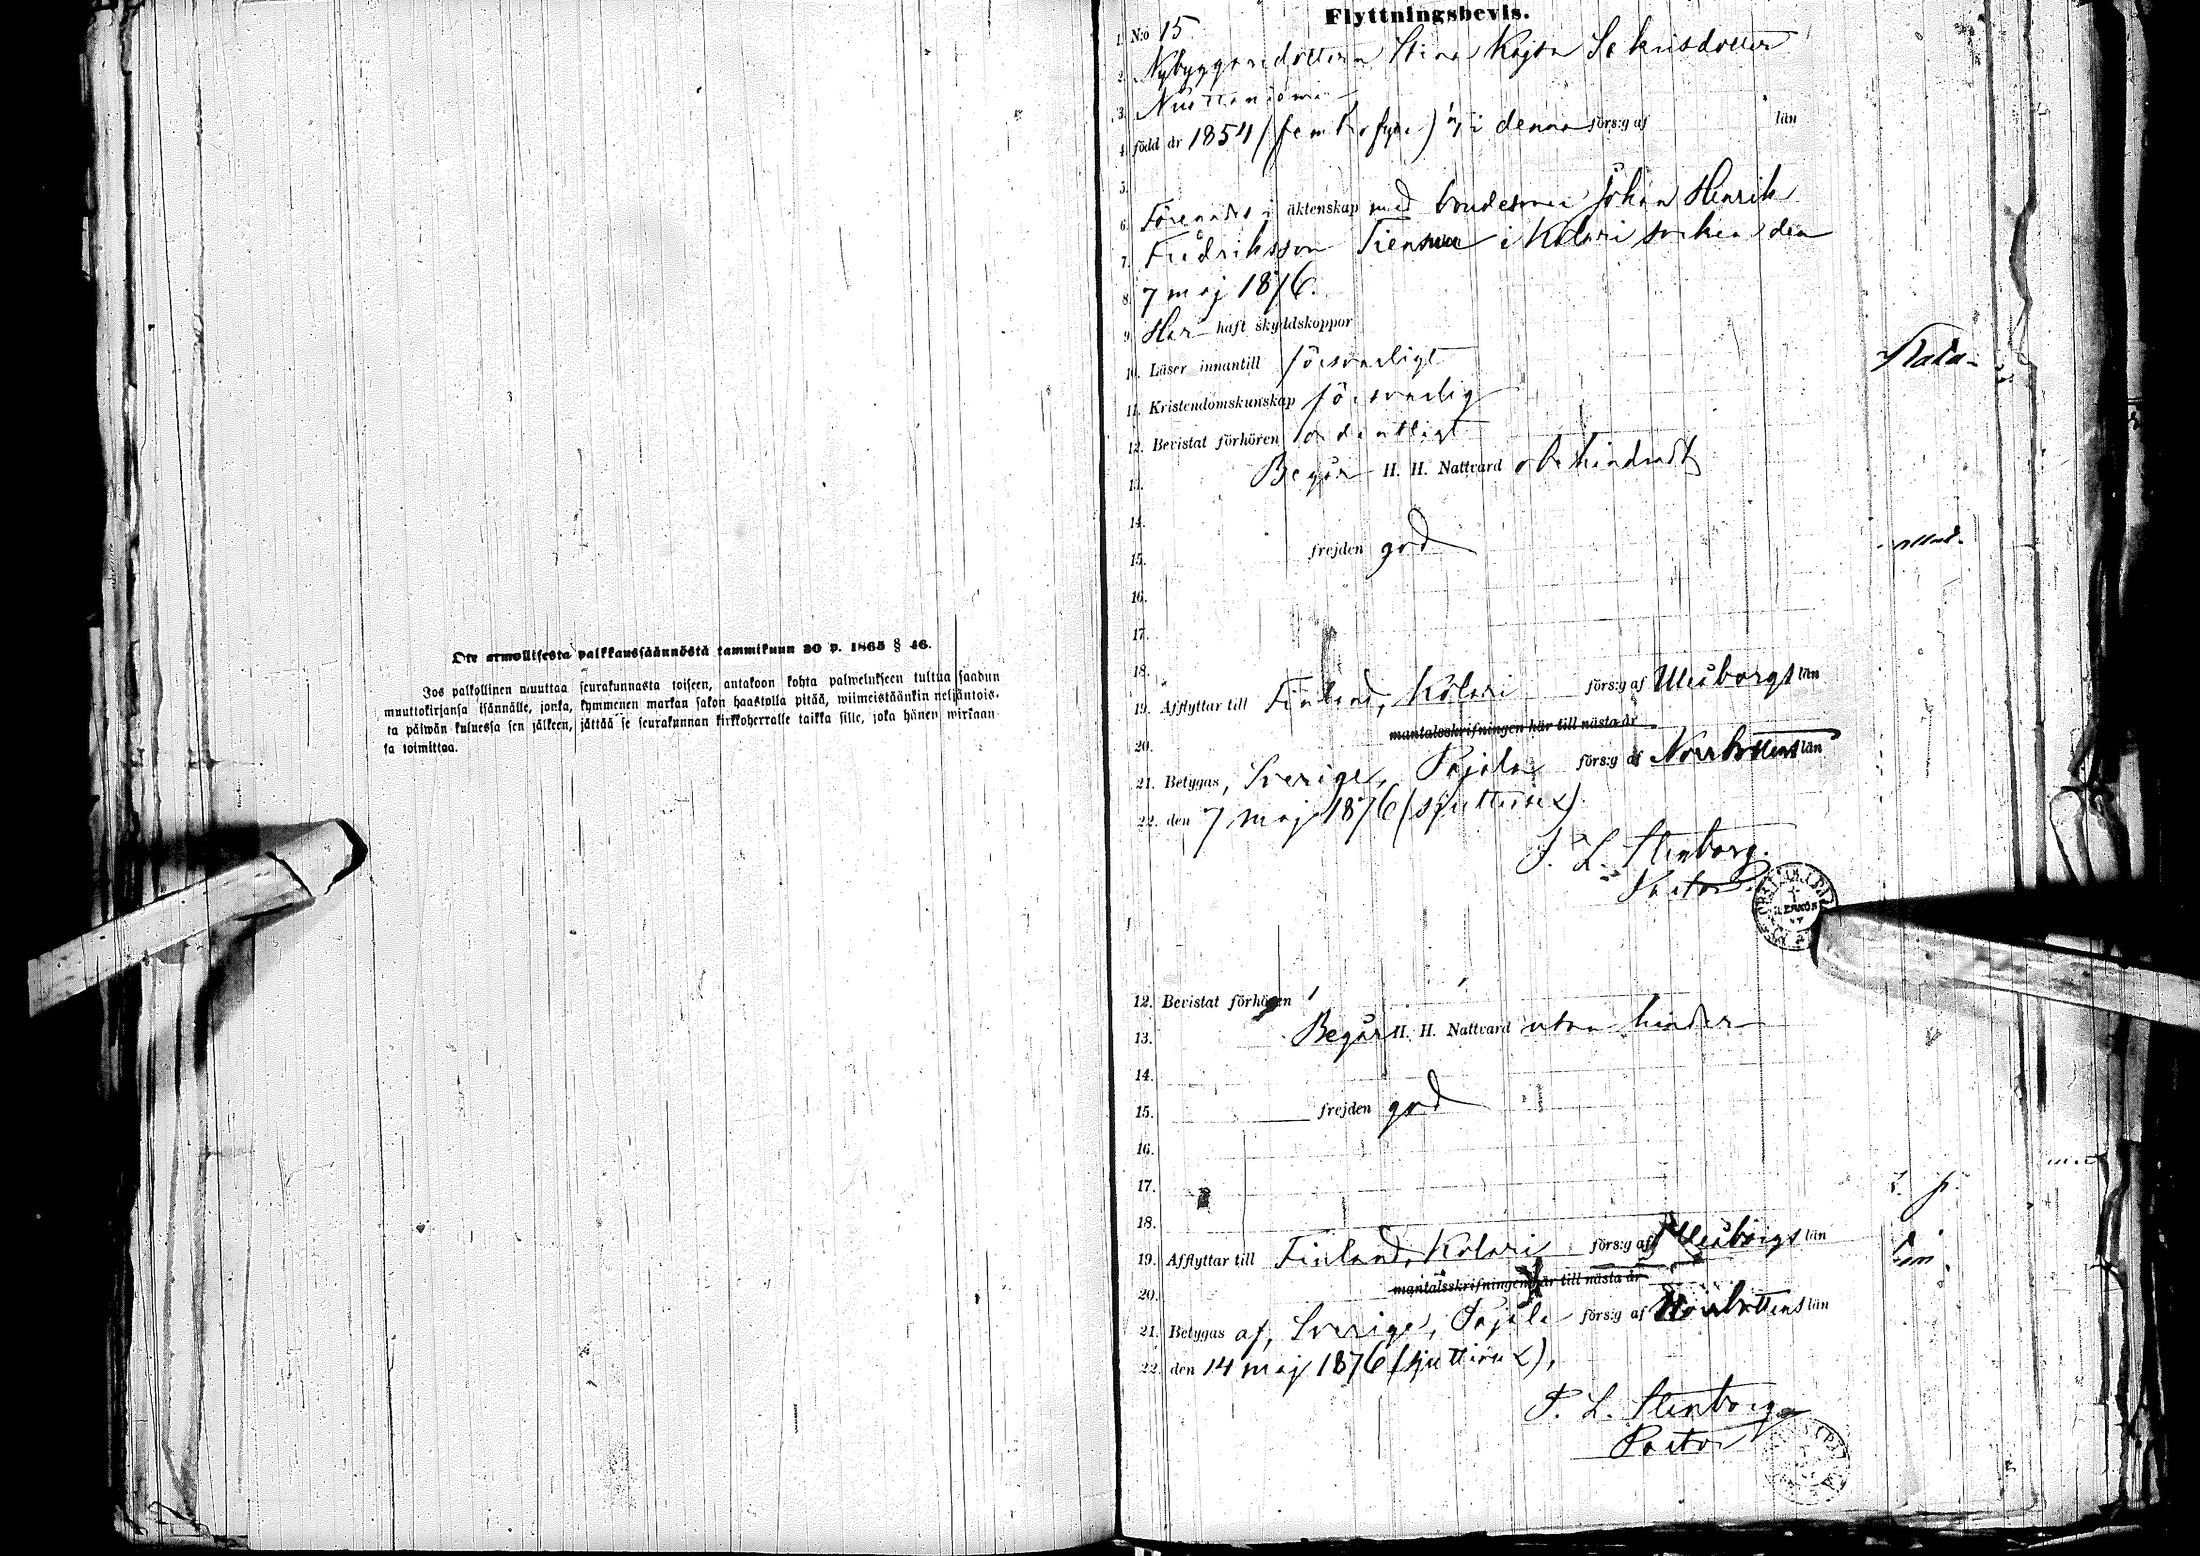 Ote armollisesta palkkaussäännöstä tammikuun 30 p. 1865 § 46.
Jos palkollinen muuttaa seurakunnasta toiseen, antakoon kohta palwelukseen tultua saadun
muuttokirjansa isännälle, jonka, kymmenen markan sakon haastolla pitää, wiimeistäänkin neljäntois-
ta päiwän kuluessa sen jälkeen, jättää se seurakunnan kirkkoherralle taikka sille, joka hänen wirkaan-
sa toimittaa.
Flyttningsbevis.
1. N:o 15
2. Nybyggaredottern Stina Kajsa
3.
4. född år 1854 (femtiofyra) i denna förs:g af län
5.
6. Förenades i äktenskap med bondesonen Johan Henrik
7. Fredriksson i Kolari socken den
8. 7 maj 1876.
9. Har haft skyddskoppor
10. Läser innantill försvarligt
11. Kristendomskunskap försvarlig
12. Bevistat förhören ordentligt
13. Begår H. H. Nattvard obehindradt
14.
15. frejden god
16.
17.
18.
19. Afflyttar till Finland, Kolari förs:g af Uleåborgs län
mantalsskrifningen här till nästa år
20.
21. Betygas, Sverige, Pajala förs:g af Norrbottens län
22. den 7 maj 1876 (sjuttiosex).
P. L. Stenborg.
Pastor.
12. Bevistat förhören
13. Begår H. H. Nattvard utan hinder
14.
15. frejden god
16.
17.
18.
19. Afflyttar till Finland, Kolari förs:g af Uleåborgs län
mantalsskrifningen här till nästa år
20.
21. Betygas af, Sverige, Pajala förs:g af Norrbottens län
22. den 14 maj 1876 (sjuttiosex),
P. L. Stenborg
Pastor